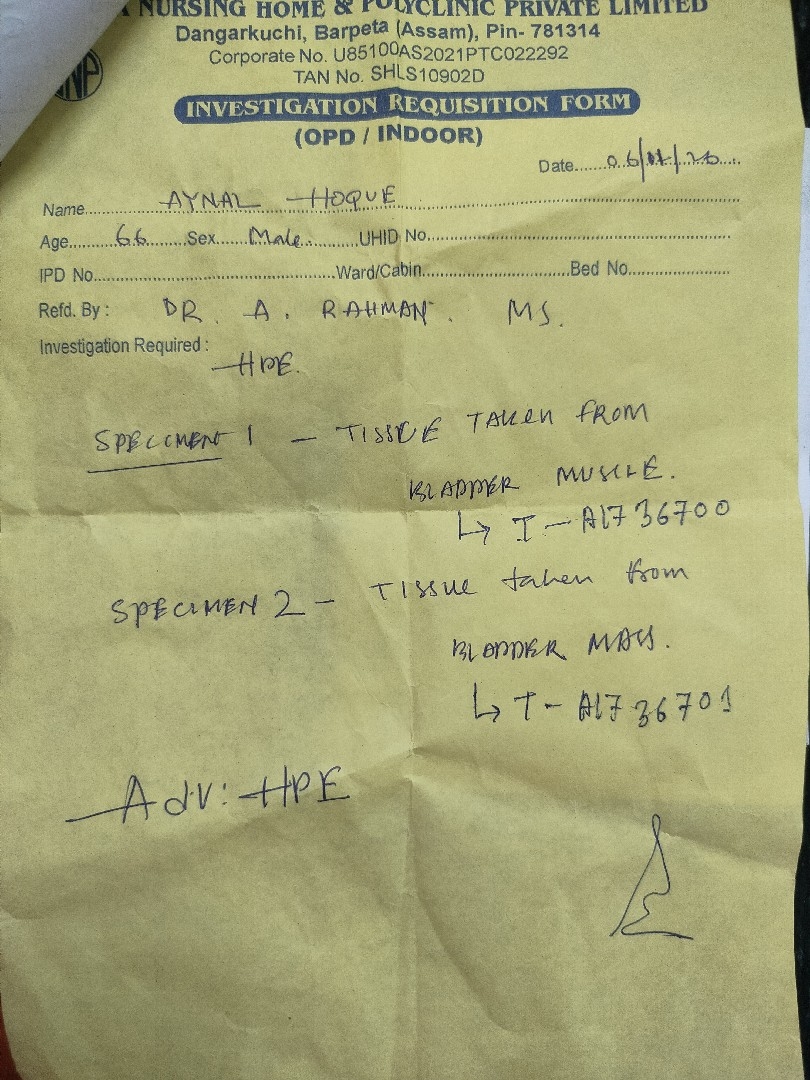 NURSING HOME & POLYCLINIC PRIVATE LIMITED
Dangarkuchi, Barpeta (Assam), Pin- 781314
Corporate No. U85100AS2021PTC022292
TAN No. SHLS10902D
INVESTIGATION REQUISITION FORM
(OPD / INDOOR)
Date
Name AYNAL HOQUE
Age 66 Sex Male UHID No.
IPD No. Ward/Cabin Bed No.
Refd. By : DR. A. RAHMAN. MS.
Investigation Required :
HPE.
SPECIMEN 1 - TISSUE TAKEN FROM
BLADDER MUSCLE.
↳ I - A1736700
SPECIMEN 2 - TISSUE taken from
BLADDER MASS.
↳ T - A1736701
Adv: HPE